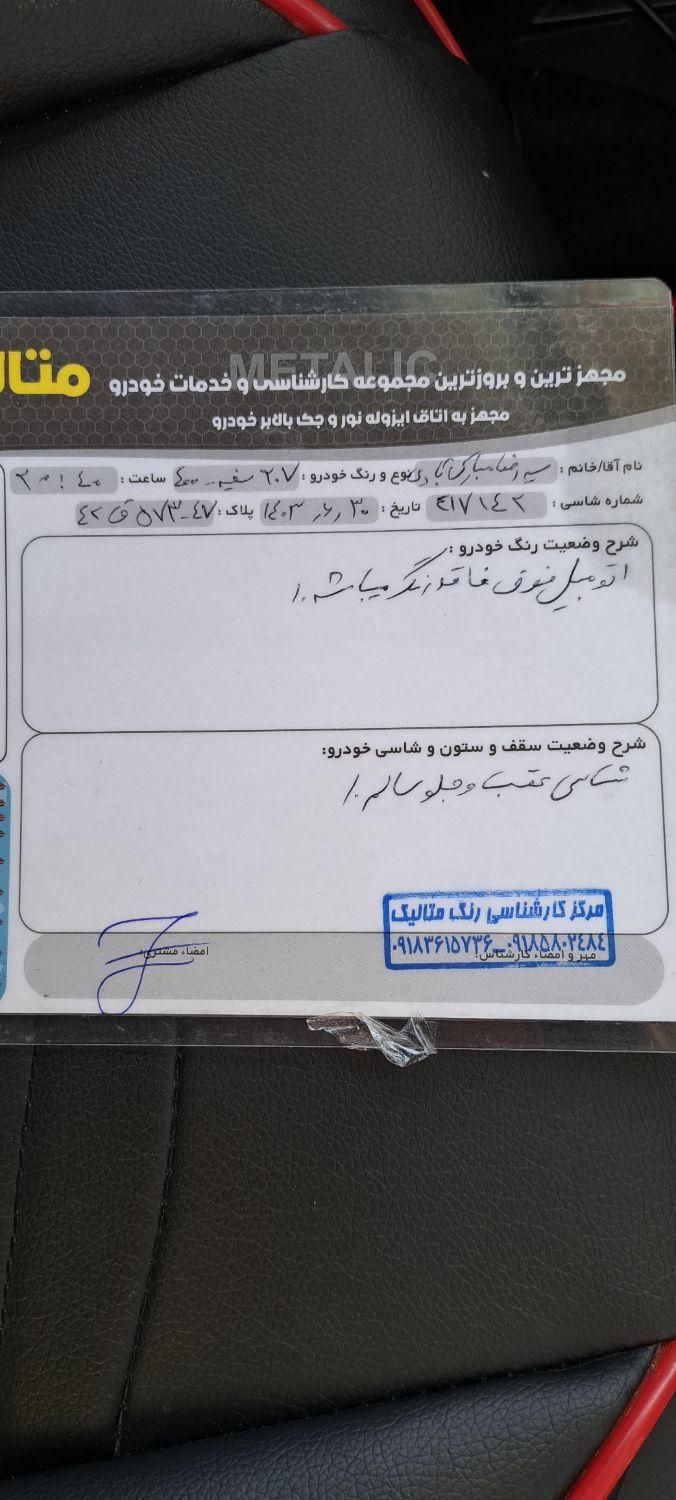 METALIC
متال
مجهز ترین و بروزترین مجموعه کارشناسی و خدمات خودرو
مجهز به اتاق ایزوله نور و جک بالابر خودرو
نام آقا/خانم : سید رضا مبارک آبادی نوع و رنگ خودرو : ۲۰۷ سفید ۴۰۰ ساعت : ۲۰:۴۰
شماره شاسی : ۴۱۷۱۴۲ تاریخ : ۱۴۰۳/۶/۳۰ پلاک : ۴۷-۵۷۳ ق ۴۲
شرح وضعیت رنگ خودرو :
اتومبیل فوق فاقد رنگ میباشد./
شرح وضعیت سقف و ستون و شاسی خودرو:
شاسی عقب و جلو سالم./
مرکز کارشناسی رنگ متالیک
۰۹۱۸۳۶۱۵۷۳۶_۰۹۱۸۵۸۰۲۴۸۴
مهر و امضاء کارشناس:
امضاء مشتری: